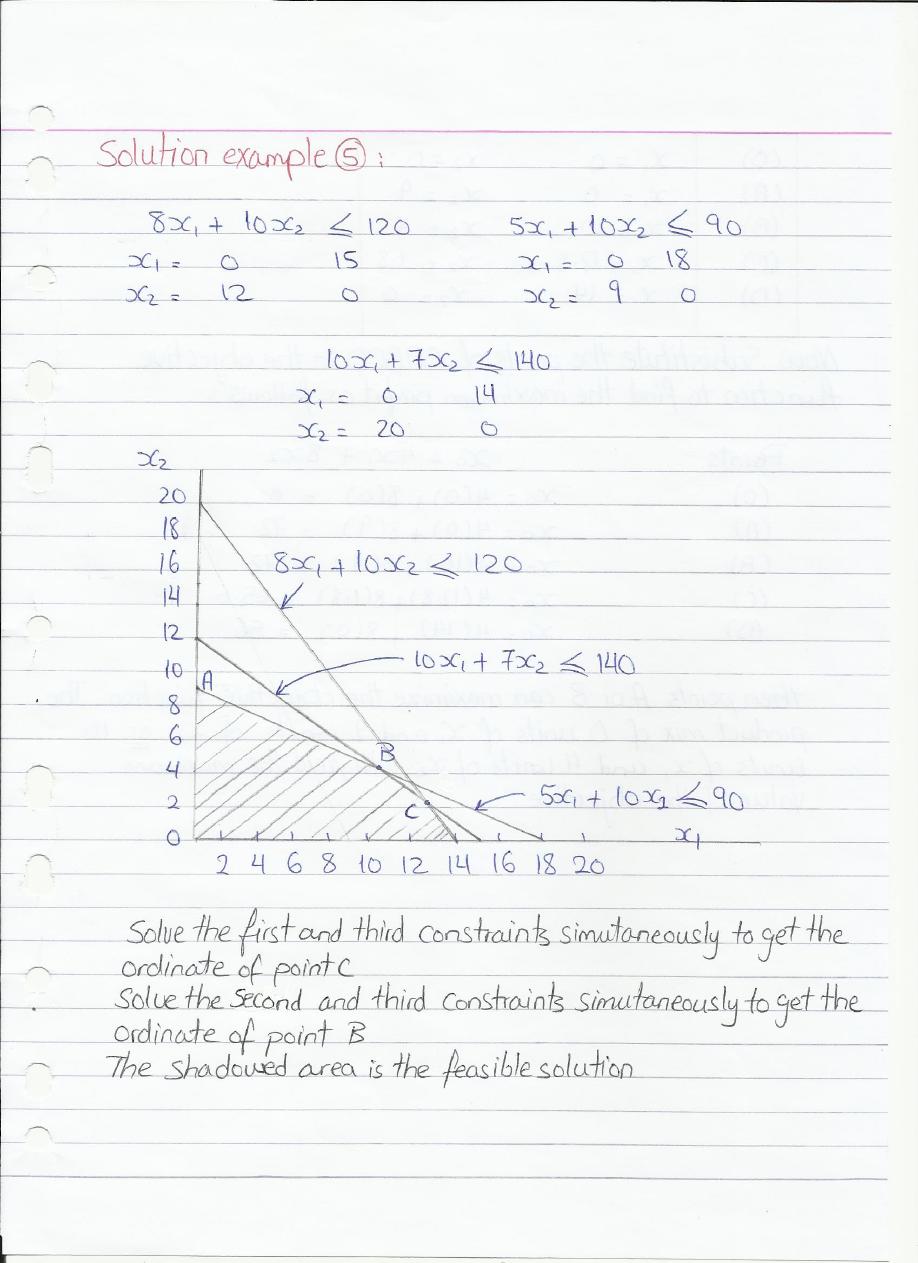 Solution example ⑤ :
8x₁ + 10x₂ ≤ 120 5x₁ + 10x₂ ≤ 90
x₁ = 0 15 x₁ = 0 18
x₂ = 12 0 x₂ = 9 0
10x₁ + 7x₂ ≤ 140
x₁ = 0 14
x₂ = 20 0
x₂
20
18
16 8x₁ + 10x₂ ≤ 120
14
12
10 10x₁ + 7x₂ ≤ 140
A
8
6
B
4
5x₁ + 10x₂ ≤ 90
2 C
0 x₁
2 4 6 8 10 12 14 16 18 20
Solve the first and third constraints simutaneously to get the
ordinate of point C
Solve the second and third constraints simutaneously to get the
ordinate of point B
The shadowed area is the feasible solution